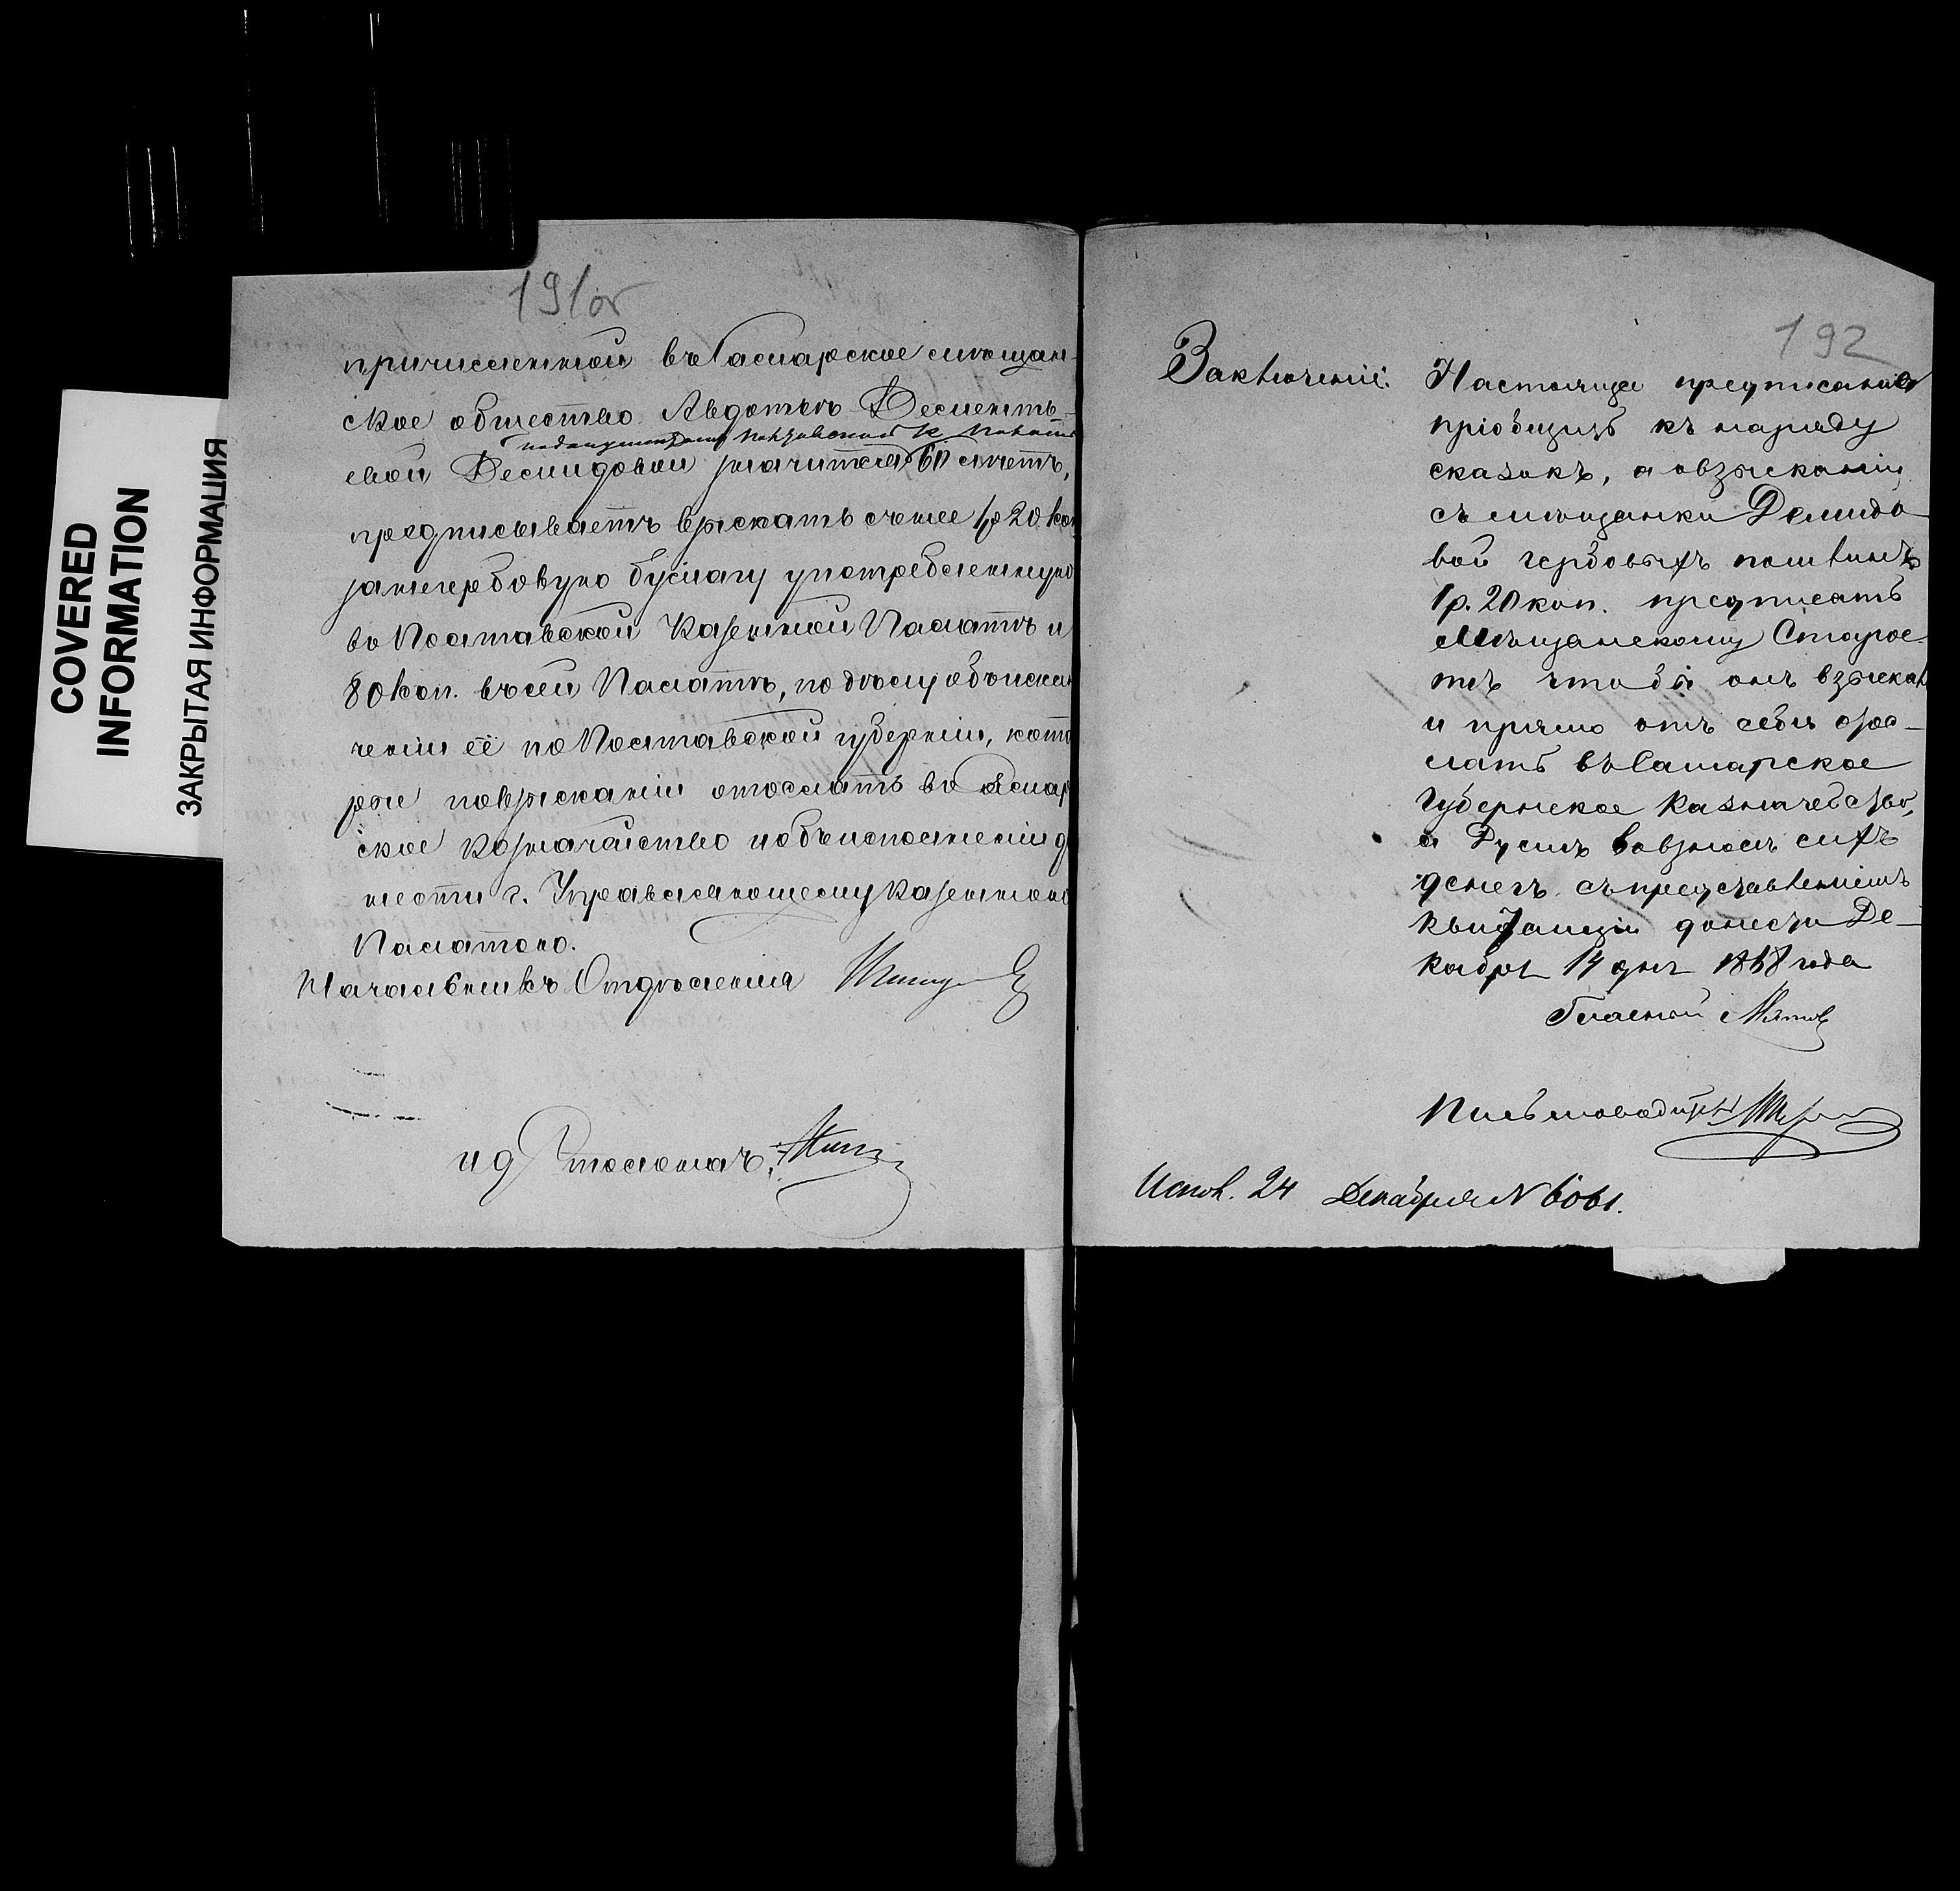 COVERED
INFORMATION
ЗАКРЫТАЯ ИНФОРМАЦИЯ
191об
причисленной въ Самарское мѣщан-
ское общество Авдотьѣ Дементь-
евой Демидовой значится 60 лѣтъ,
предписываетъ взыскать съ нее 1 р 20 коп
за гербовую бумагу употребленную
въ Полтавской Казенной Палатѣ и
80 коп. въ сей Палатѣ, по дѣлу
ченіи её по Полтавской губерніи, кото
рые по взысканіи отослать въ Самар
ское Казначейство и объ исполненіи д
нести г. Управляющему Казенною
Палатою.
Начальникъ Отдѣленія
и д Столонач:
192
Заключеніе.
Настоящее предписаніе
пріобщить къ наряду
сказокъ, а о взысканіи
съ мѣщанки Демидо-
вой гербовыхъ пошлинъ
1 р. 20 коп. предписать
Мѣщанскому Старос-
тѣ что бы онъ взыскалъ
и прямо отъ себя ото-
слать въ Самарское
Губернское Казначейство,
а Думѣ о взносѣ сихъ
денегъ съ представленіемъ
квитанціи донести Де-
кабря 14 дня 1868 года
Гласный
Письмоводитель
Исполн. 24 Декабря N 6061.